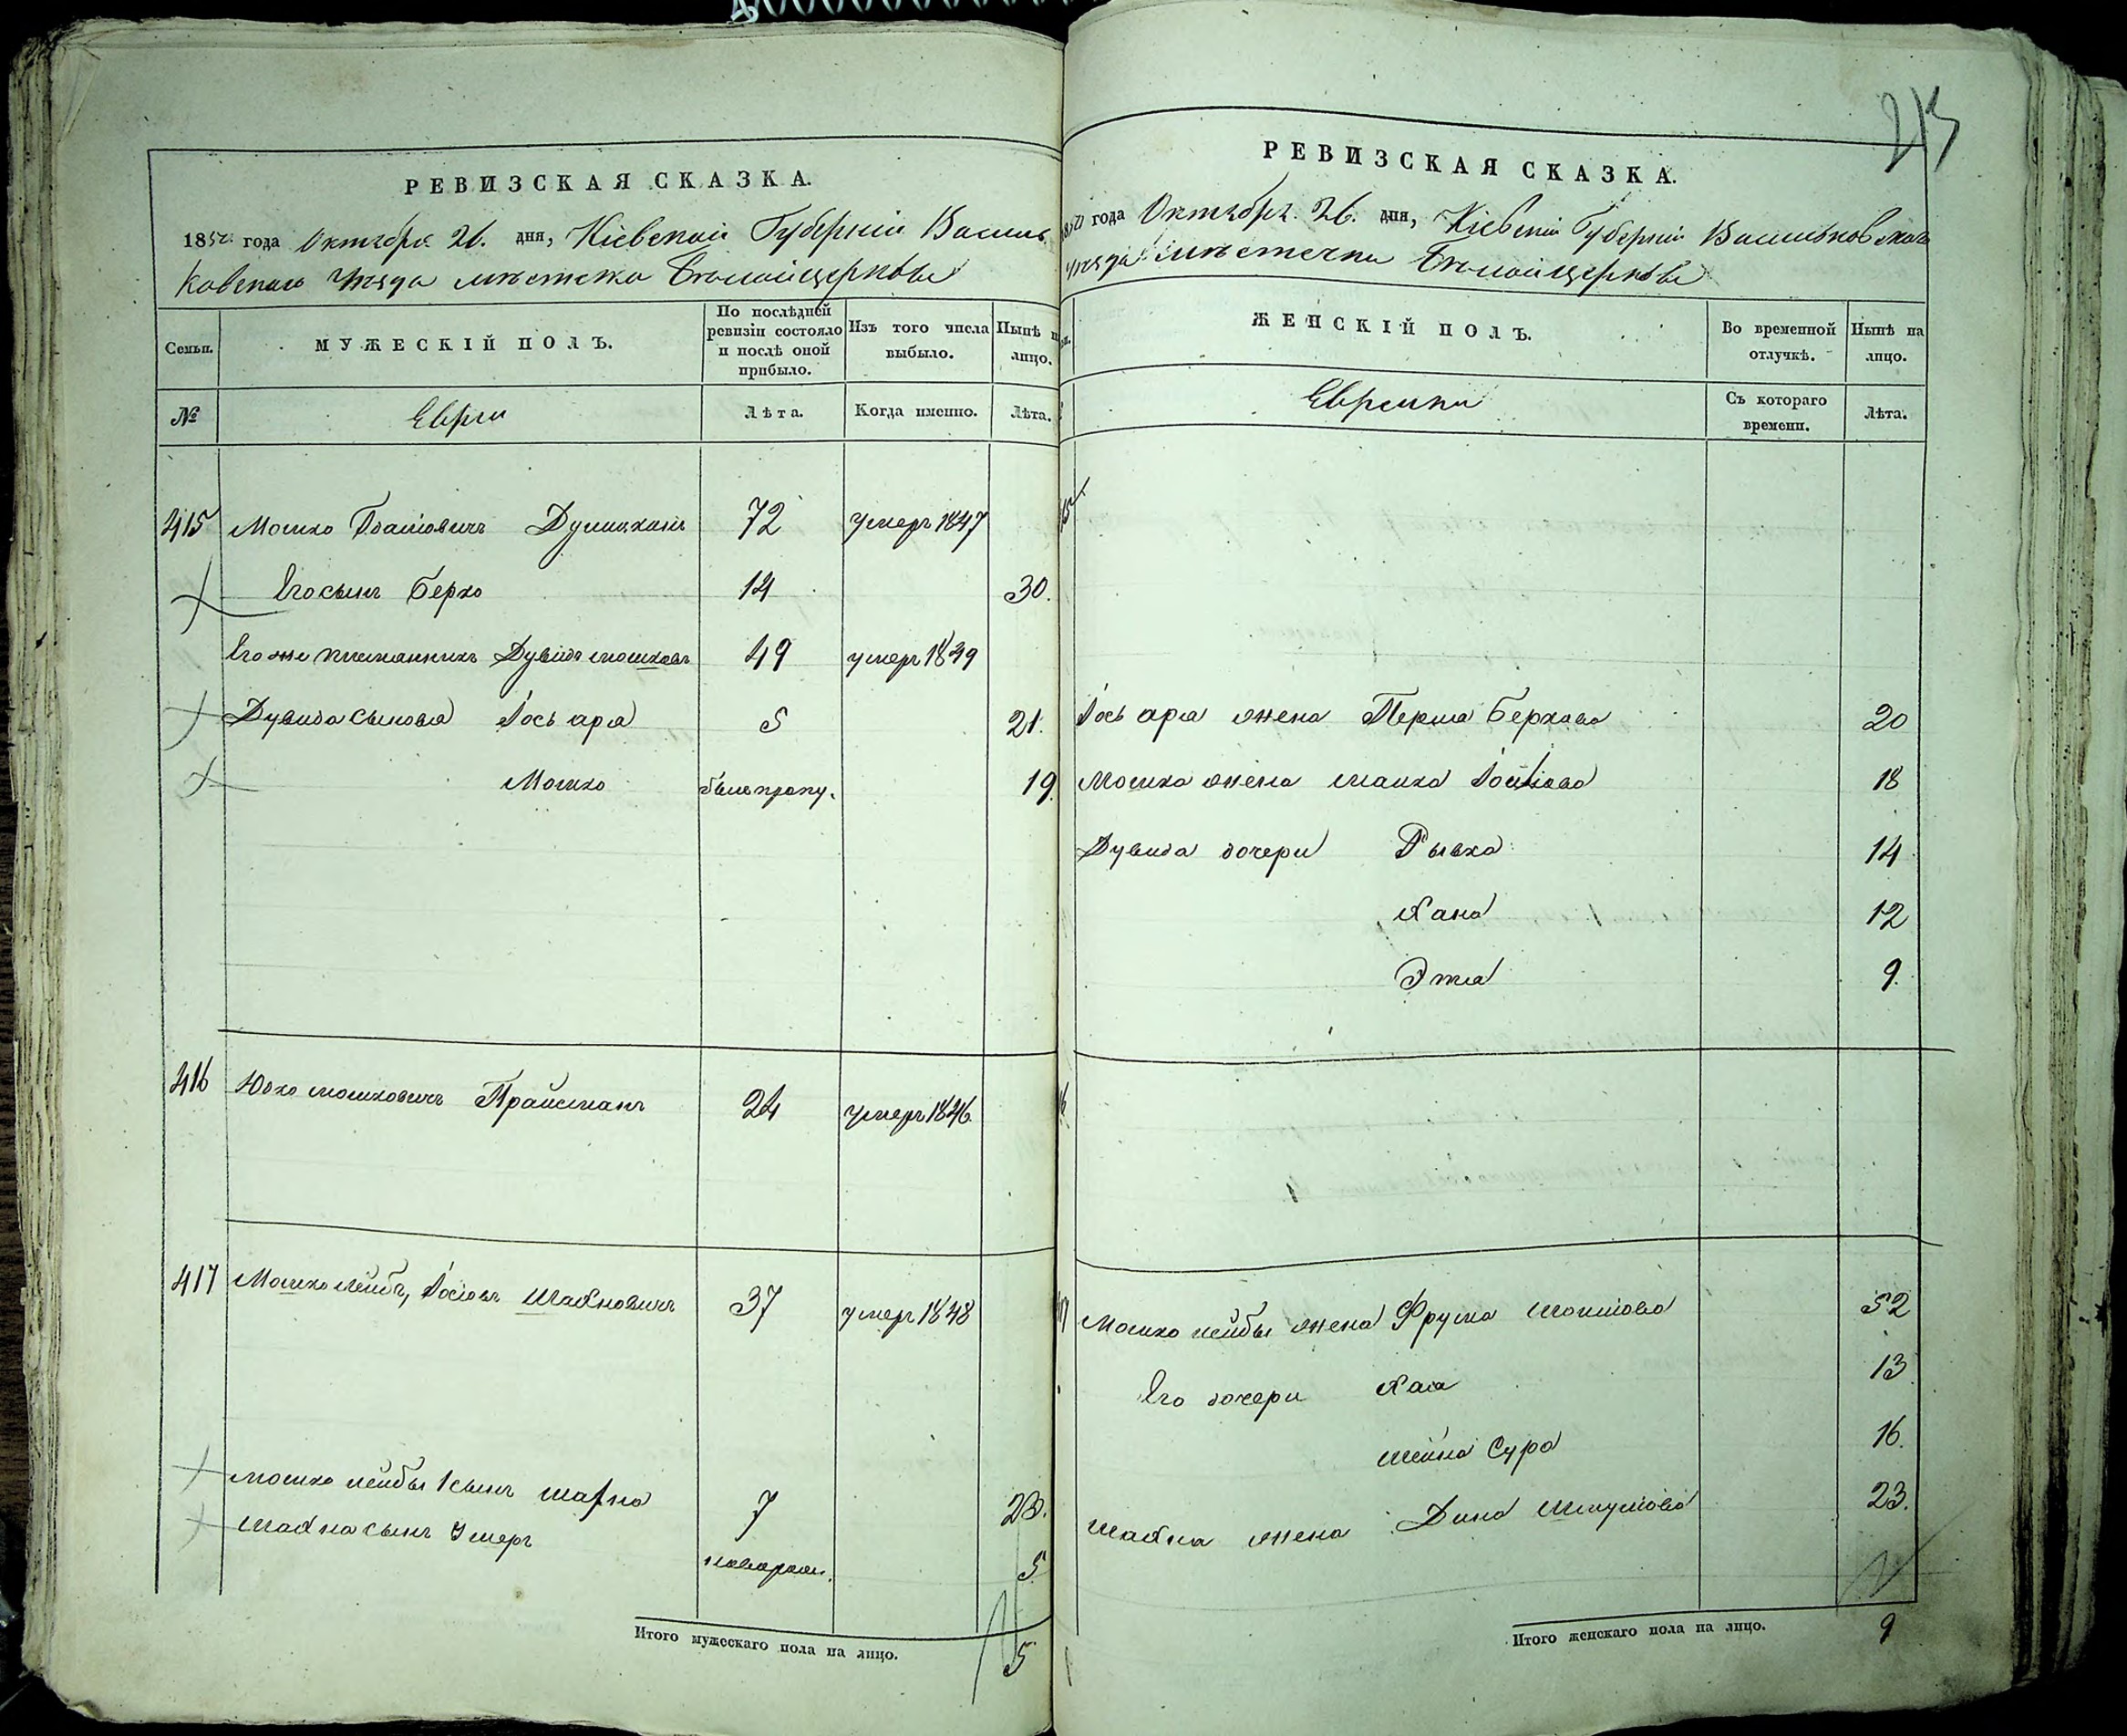 213
РЕВИЗСКАЯ СКАЗКА.
1850 года Октября 26. дня, Кіевской Губерніи Василь
ковскаго Уѣзда мѣстечка Бѣлойцеркви
Семьи.
МУЖЕСКІЙ ПОЛЪ.
По послѣдней ревизіи состояло и послѣ оной прибыло.
Изъ того числа выбыло.
Нынѣ на лицо.
№
Евреи
Лѣта.
Когда именно.
Лѣта.
415 Мошко 72 умеръ 1847
Его сынъ Берко 14 30.
Его же племянникъ Дувидъ Мошковъ 49 умеръ 1849
Дувида сыновья Іось ара 5 21.
Мошко былъ пропу. 19.
416 Юдко Мошковичъ Прайсманъ 24 умеръ 1846.
417 Мошко Лейбъ, Іосіовъ Шахновичъ 37 умеръ 1848
Мошко Лейбы 1 сынъ Шахна 7 23.
Шахна сынъ Умеръ новорож. 5
Итого мужескаго пола на лицо. 5
РЕВИЗСКАЯ СКАЗКА.
1850 года Октября 26. дня, Кіевской Губерніи Васильковскаго
Уѣзда мѣстечка Бѣлойцеркви
ЖЕНСКІЙ ПОЛЪ.
Во временной отлучкѣ.
Нынѣ на лицо.
Еврейки
Съ котораго времени.
Лѣта.
Іось ара жена Перля Беркова 20
Мошка жена 18
Дувида дочери Рывка 14
Хана 12
Этля 9.
Мошко Лейбы жена Фрума 52
Его дочери Хая 13
Шейна Сура 16.
Шахна жена Дина Шмулiова 23.
Итого женскаго пола на лицо. 9